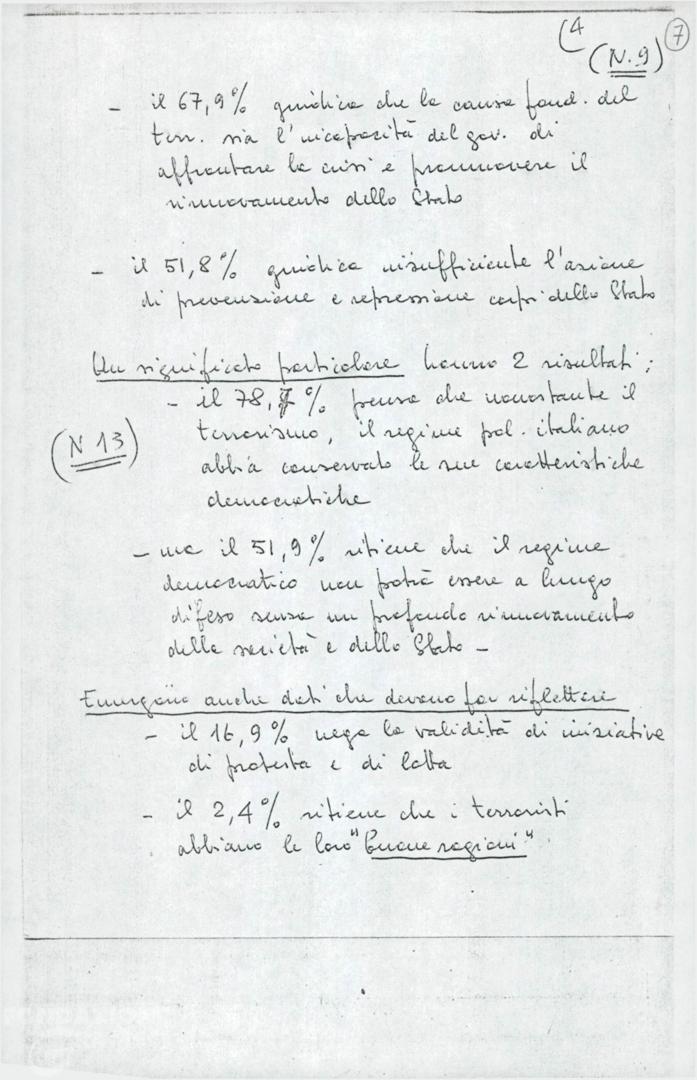 (4
(N. 9) 7
- il 67,9% giudica che la causa fond. del
terr. sia l'incapacità del gov. di
affrontare la crisi e promuovere il
rinnovamento dello Stato
- il 51,8% giudica insufficiente l'azione
di prevenzione e repressione corpi dello Stato
Un significato particolare hanno 2 risultati:
- il 78,7% pensa che nonostante il
(N 13)
terrorismo, il regime pol. italiano
abbia conservato le sue caratteristiche
democratiche
- ma il 51,9% ritiene che il regime
democratico non potrà essere a lungo
difeso senza un profondo rinnovamento
della società e dello Stato -
Emergono anche dati che devono far riflettere
- il 16,9% nega la validità di iniziative
di protesta e di lotta
- il 2,4% ritiene che i terroristi
abbiano le loro "buone ragioni"